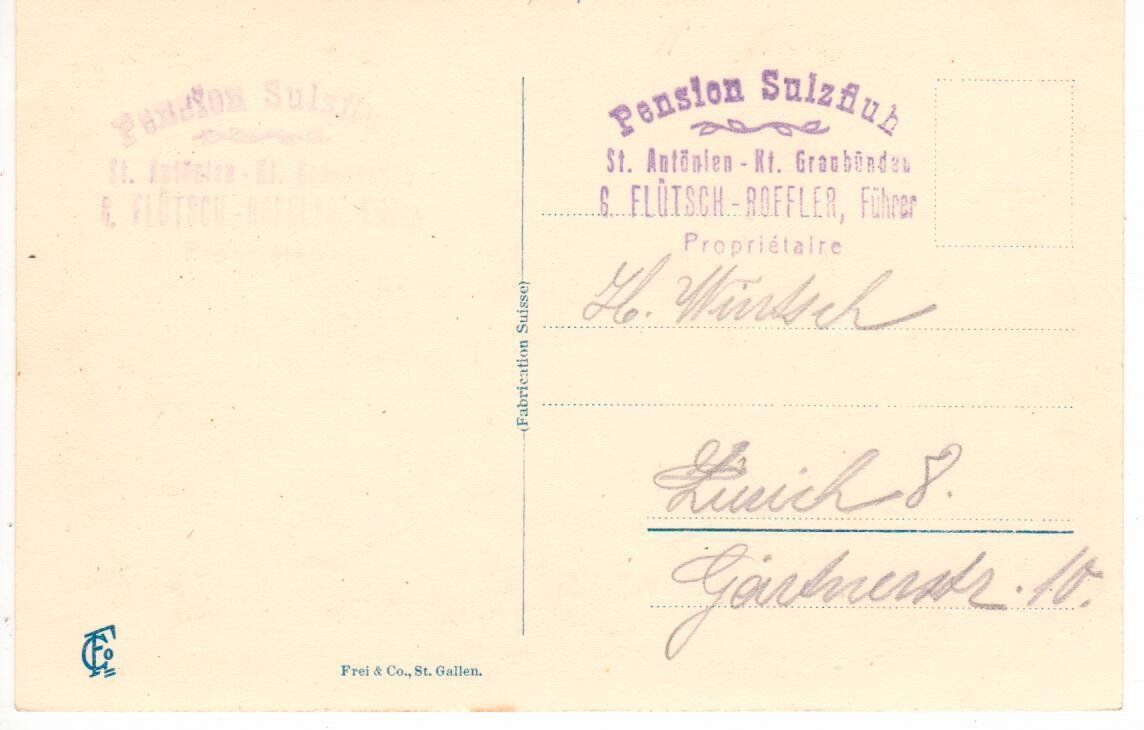 Pension Sulzfluh
St. Antönien - Kt. Graubünden
G. FLÜTSCH - ROFFLER, Führer
Propriétaire
Pension Sulzfluh
St. Antönien - Kt.
G. FLÜTSCH - ROFFLER, Führer
Propriétaire
(Fabrication Suisse)
H. Wintsch
Zürich 8.
Gärtnerstr. 10.
Frei & Co., St. Gallen.